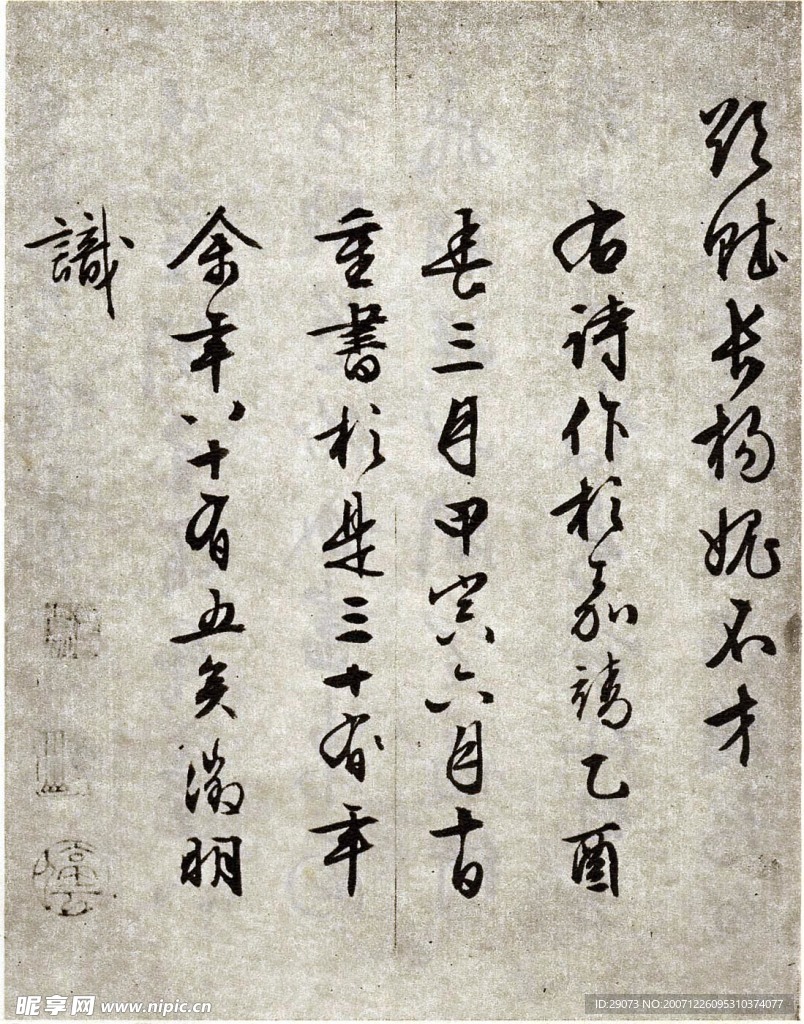 欲賦長楊媿不才
右詩作於嘉靖乙酉
春三月甲寅六月十日
重書於是三十有年
余年八十有五矣徵明
識
停雲
昵享网 www.nipic.cn
ID:29073 NO:20071226095310374077